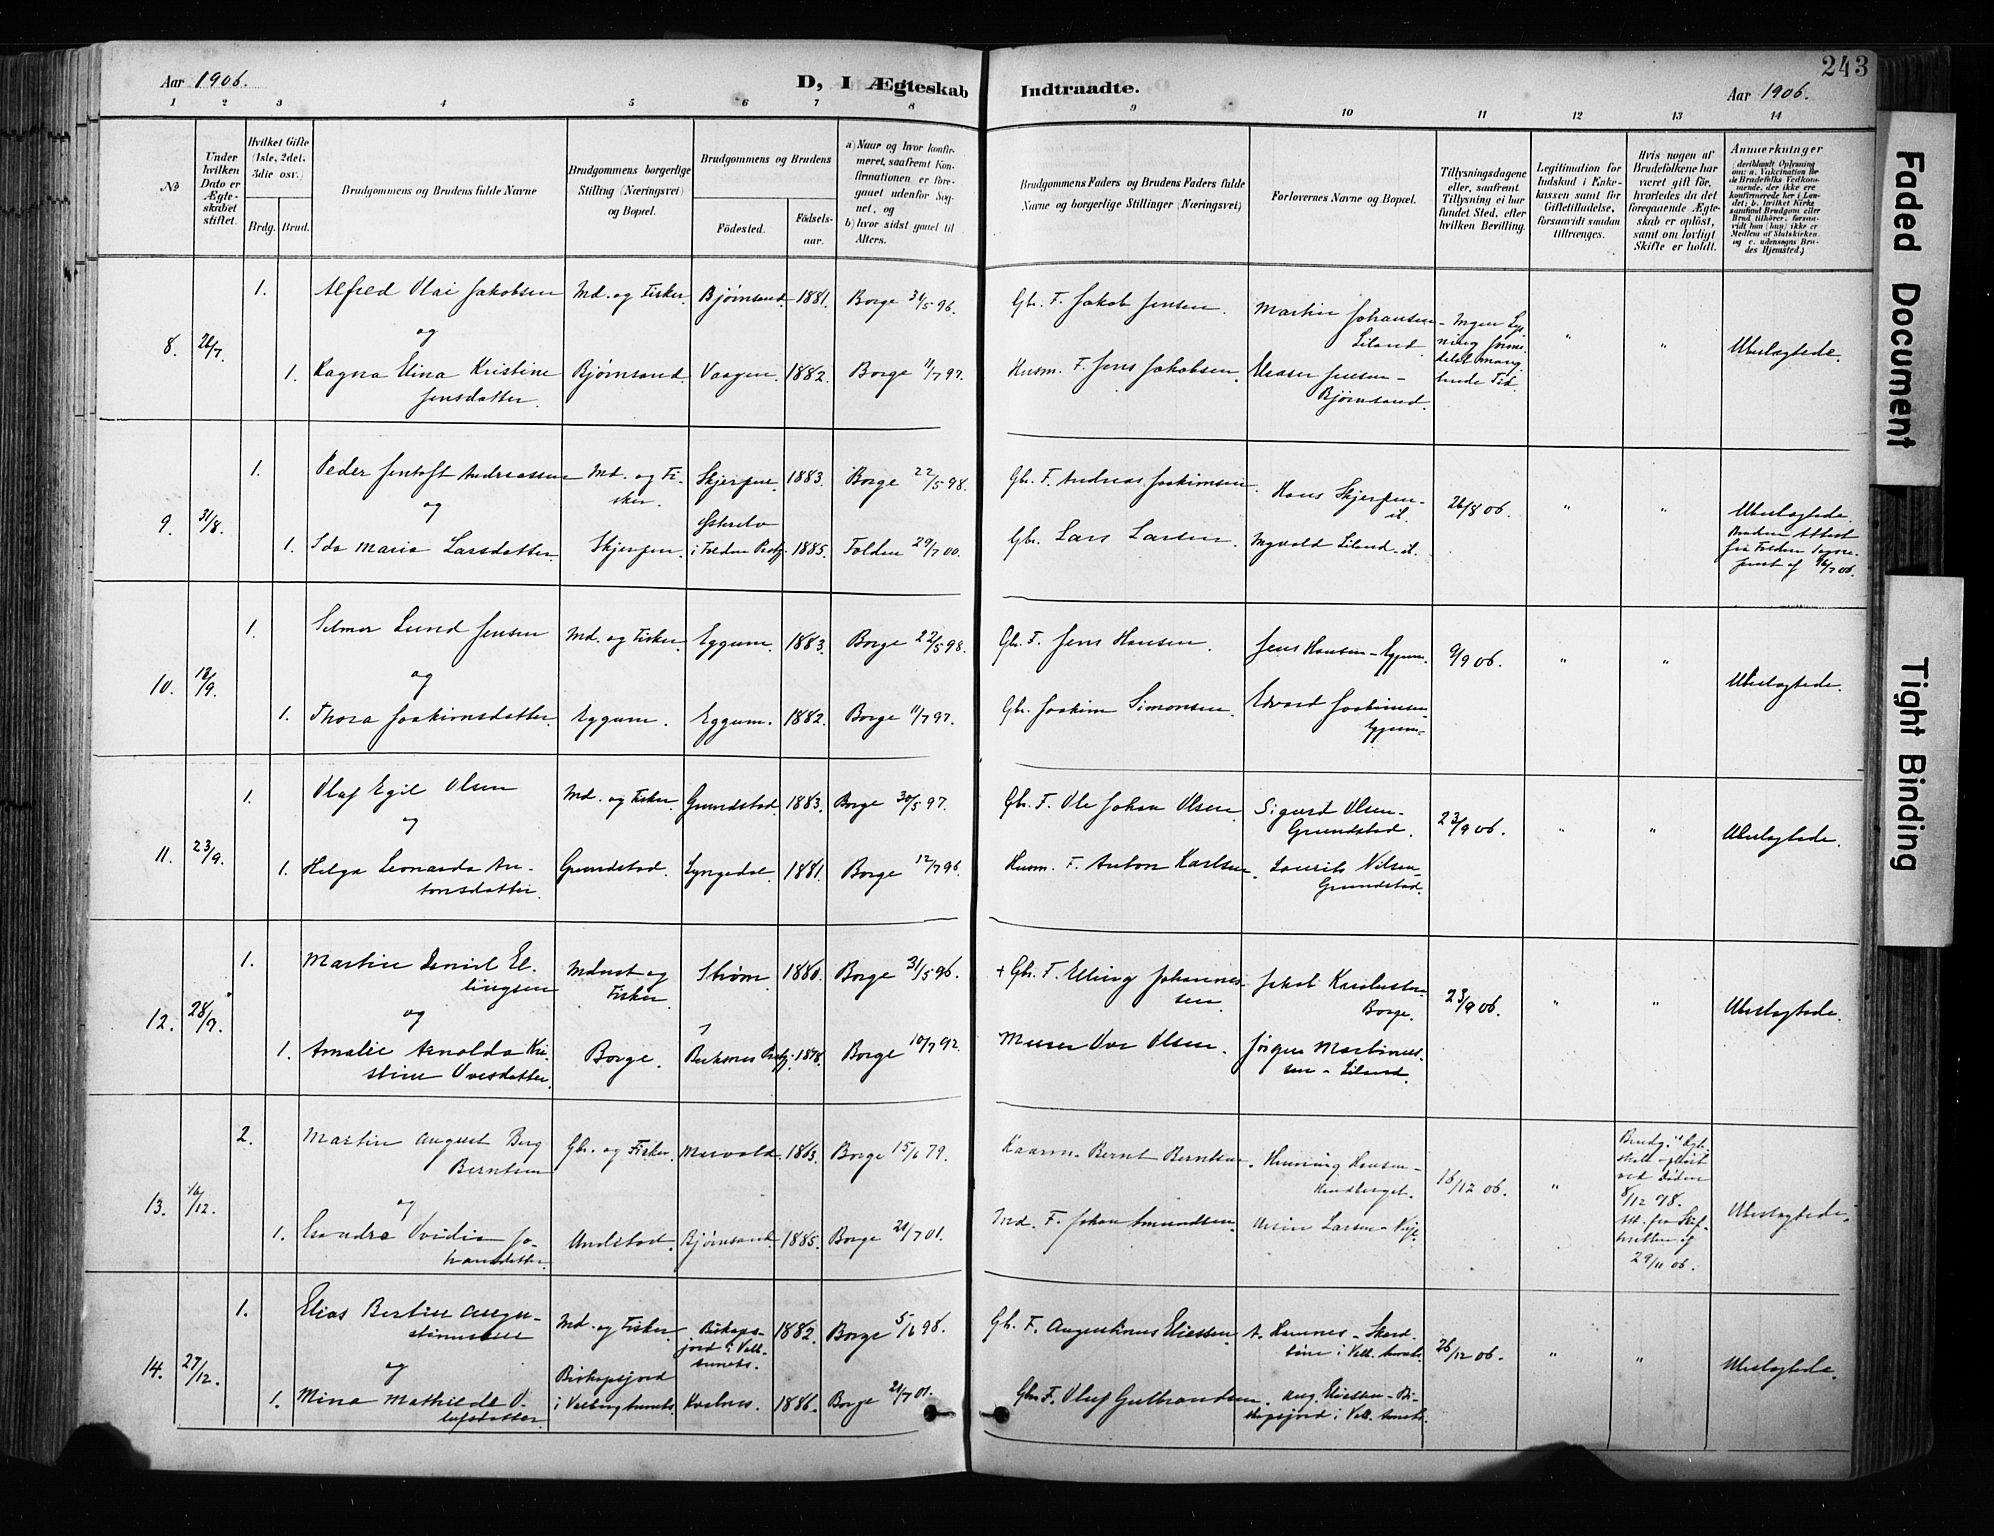 243
Aar 1906.
D, I Ægteskab Indtraadte.
Aar 1906.
1 2 3 4 5 6 7 8 9 10 11 12 13 14
№
Under hvilken Dato er Ægteskabet stiftet.
Hvilket Gifte (1ste, 2det, 3die osv.)
Brdg. Brud.
Brudgommens og Brudens fulde Navne
Brudgommens borgerlige Stilling (Næringsvei) og Bopæl.
Brudgommens og Brudens
Födested.
Födselsaar.
a) Naar og hvor konfirmeret, saafremt Konfirmationen er foregaaet udenfor Sognet, og
b) hvor sidst gaaet til Alters.
Brudgommens Faders og Brudens Faders fulde Navne og borgerlige Stillinger (Næringsvei)
Forlovernes Navne og Bopæl.
Tillysningsdagene eller, saafremt Tillysning ei har fundet Sted, efter hvilken Bevilling.
Legitimation for Indskud i Enkekassen samt for Giftetilladelse, forsaavidt saadan tiltrænges.
Hvis nogen af Brudefolkene har været gift för, hvorledes da det foregaaende Ægteskab er oplöst, samt om lovligt Skifte er holdt.
Anmærkninger
8. 26/7.
1. Alfred Olai Jakobsen Md. og Fisker Bjørnsand 1881. Borge 31/5 96. Gbr. F. Jakob Jensen. Martin Johansen - Liland
og
1. Ragna Elina Kristine Jensdatter. Bjørnsand. Vaagen. 1882. Borge 11/7 97. Husm. F. Jens Jakobsen. Jensen - Bjørnsand.
Ingen Lysning formedelst manglende Tid.
" " Ubeslægtede.
9. 31/8.
1. Peder Jentoft Andreassen Md. og Fisker. Skjerpen. 1883. Borge 22/5 98. Gbr. F. Andreas Joakimsen. Hans Skjerpen
og
1. Ida Maria Larsdatter. Skjerpen. i Folden Prstgj. 1885. Folden 29/7 00. Gbr. Lars Larsen. Ingvald Liland
26/8 06. " " Ubeslægtede.
Brudens Attest fra Folden
10. 12/9.
1. Selmer Lund Jensen Md. og Fisker Eggum. 1883. Borge 22/5 98. Gbr. F. Jens Hansen. Jens Hansen - Eggum.
og
1. Thora Joakimsdatter. Eggum. Eggum. 1882. Borge 11/7 97. Gbr. Joakim Simonsen. Edvard Joakimsen - Eggum.
9/9 06. " " Ubeslægtede.
11. 23/9.
1. Olaf Egil Olsen Md. og Fisker Grundstad. 1883. Borge 30/5 97. Gbr. F. Ole Johan Olsen. Sigurd Olsen - Grundstad.
og
1. Helga Leonarda Antonsdatter. Grundstad. Lyngedal. 1881. Borge 12/7 96. Husm. F. Anton Karlsen. Laurits Nilsen - Grundstad.
23/9 06. " " Ubeslægtede.
12. 28/9.
1. Martin Daniel Ellingsen Mdmst og Fisker Strøm 1880. Borge 31/5 96. + Gbr. F. Elling Johannessen. Jakob - Borge.
og
1. Amalie Arnolda Kristine Ovesdatter. Borge. Buksnes Prstgj. 1878. Borge 10/7 92. Murer Ove Olsen. Jørgen Martinussen - Liland.
23/9 06. " " Ubeslægtede.
13. 16/12.
2. Martin August Berg Berntsen Gbr. og Fisker. Mervold. 1863. Borge 15/6 79. Kaarm. Bernt Berntsen. Henning Hansen -
og
1. Sandra Ovidia Johansdatter. Undstad. Bjørnsand. 1885. Borge 21/7 01. Ind. F. Johan Amundsen. Larsen -
16/12 06. " 8/12 98. 29/11 06. Ubeslægtede.
14. 27/12.
1. Elias Bertin Augustinussen Md. og Fisker Biskopsfjord i Valbunets. 1882. Borge 5/6 98. Gbr. F. Augustinus Eliessen. A. Hannes -
og
1. Mina Mathilde Olufsdatter Biskopsfjord Kvalnes. 1886. Borge 21/7 01. Gbr. F. Oluf Gulbrandsen. Aug. Eliessen - Biskopsfjord
26/12 06. " " Ubeslægtede.
Faded Document
Tight Binding